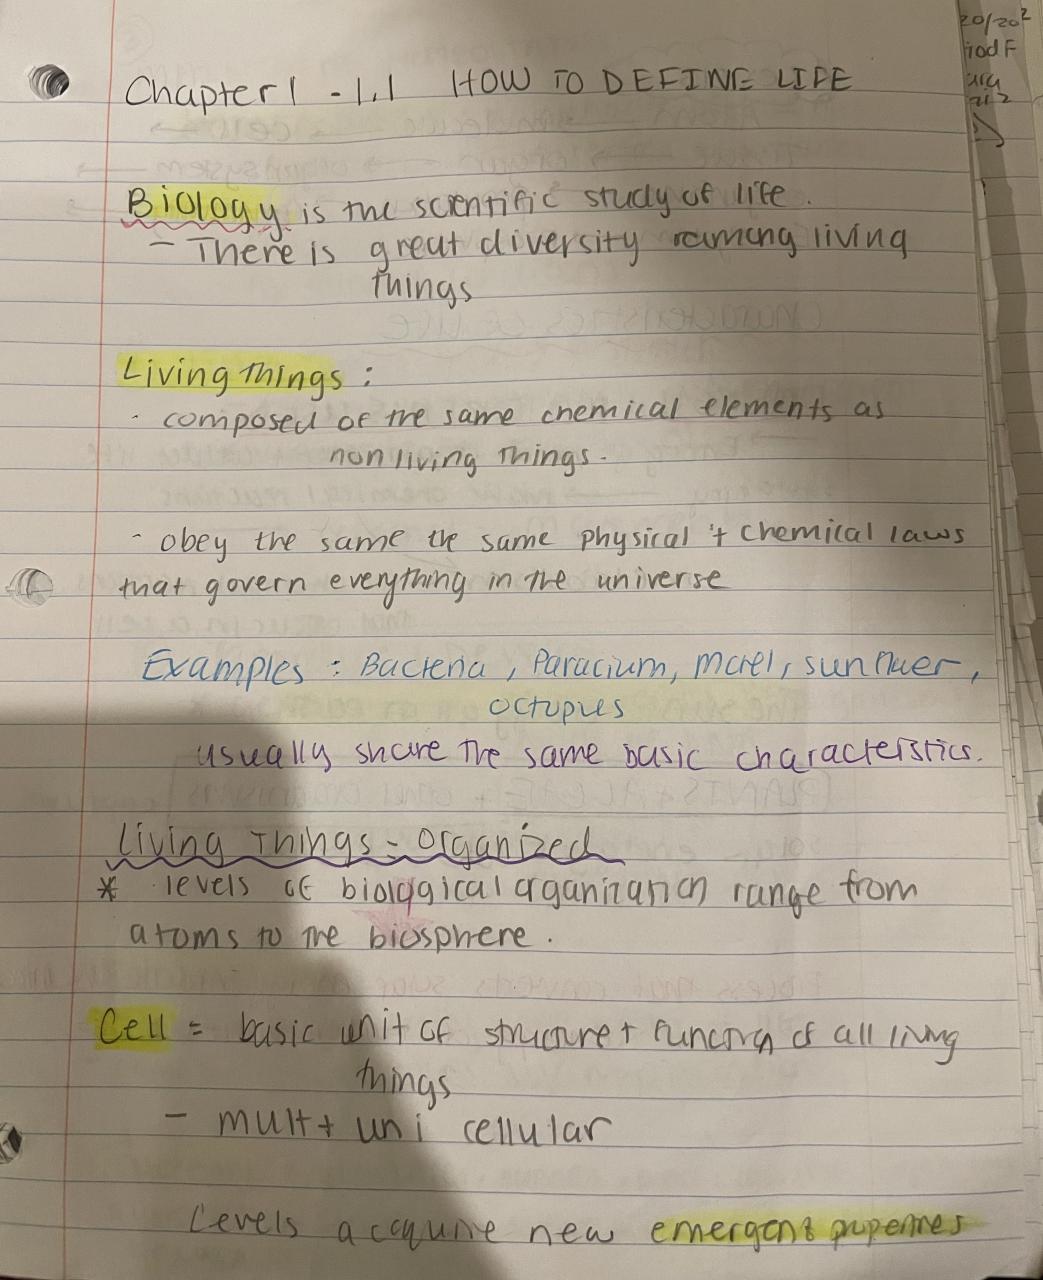 20/20²
iod F
Chapter 1 - 1.1 HOW TO DEFINE LIFE
Biology is the scientific study of life.
- There is great diversity among living
things
Living Things :
- composed of the same chemical elements as
non living things.
- obey the same the same physical + chemical laws
that govern everything in the universe
Examples : Bacteria, Paracium, morel, sunfluer,
octupues
usually share the same basic characteristics.
Living Things - Organized
* levels of biological organization range from
atoms to the biosphere.
Cell = basic unit of structure + function of all living
things
- mult + uni cellular
Levels accquire new emergent properties